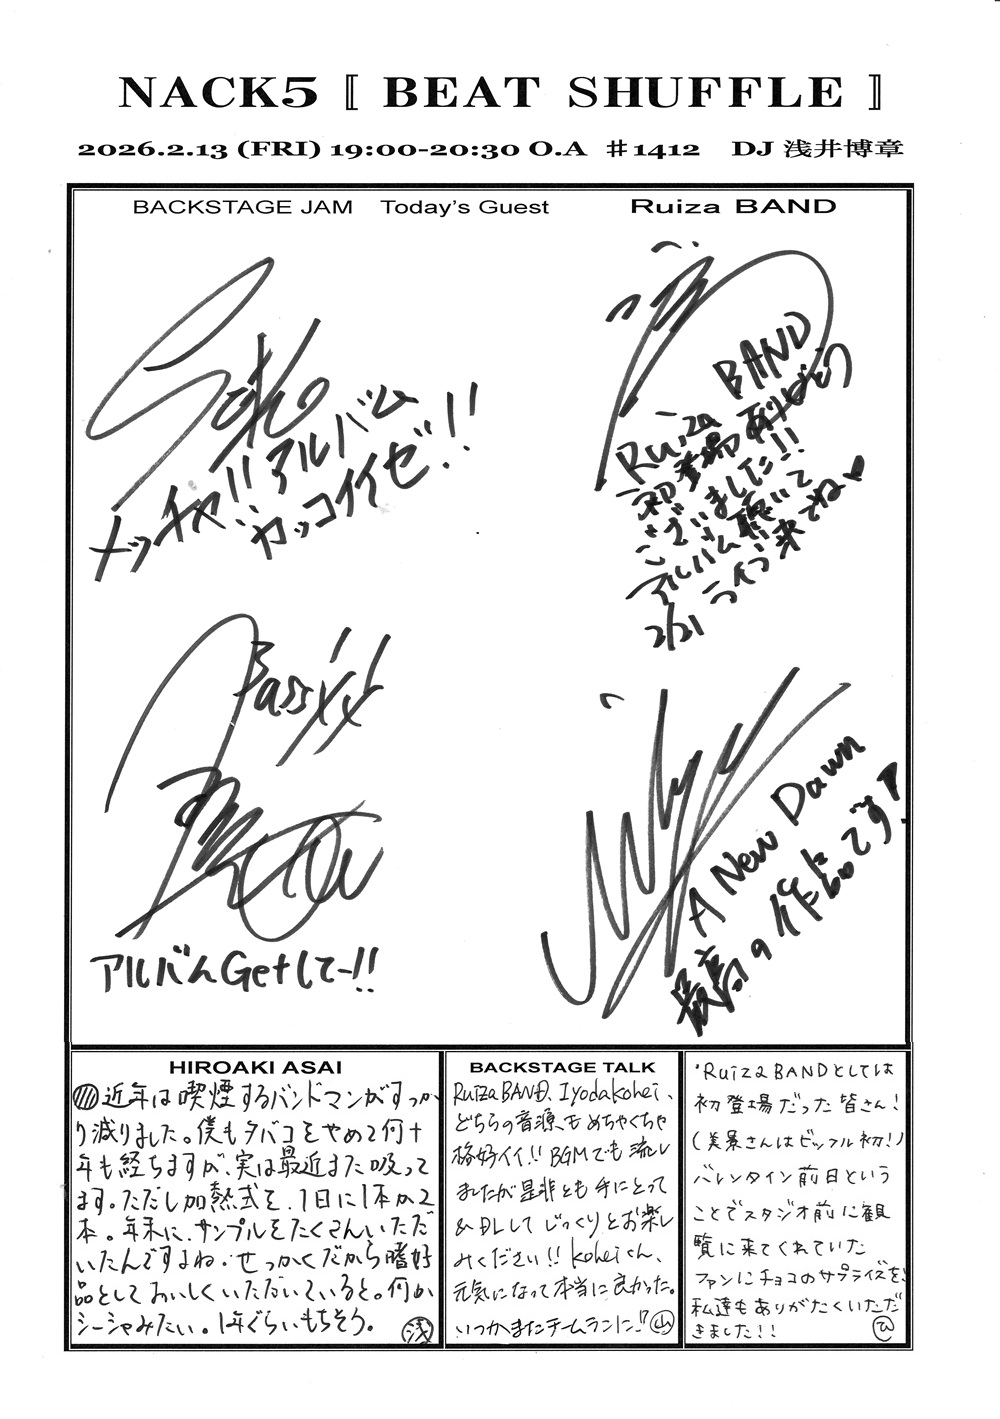 NACK5 〚 BEAT SHUFFLE 〛
2026.2.13 (FRI) 19:00-20:30 O.A ♯1412 DJ 浅井博章
BACKSTAGE JAM Today's Guest Ruiza BAND
メッチャ!!アルバム
カッコイイゼ!!
Ruiza BAND
初登場ありがとう
ございました!!
アルバム聴いて
2/21 ライブ来てね♥
アルバムGetしてー!!
A New Dawn
最高の作品です!
HIROAKI ASAI
近年は喫煙するバンドマンがすっか
り減りました。僕もタバコをやめて何十
年も経ちますが、実は最近また吸って
ます。ただし加熱式を、1日に1本か2
本。年末に、サンプルをたくさんいただ
いたんですよね。せっかくだから嗜好
品としておいしくいただいていると。何か
シーシャみたい。1年ぐらいもちそう。
浅
BACKSTAGE TALK
RuizaBAND、Iyodakohei、
どちらの音源もめちゃくちゃ
格好イイ!!BGMでも流し
ましたが是非とも手にとって
&DLしてじっくりとお楽し
みください!!koheiくん、
元気になって本当に良かった。
いつかまたチームランに!!
山
・RuizaBANDとしては
初登場だった皆さん!
(美景さんはビッフル初!)
バレンタイン前日という
ことでスタジオ前に観
覧に来てくれていた
ファンにチョコのサプライズを、
私達もありがたくいただ
きました!!
ひ